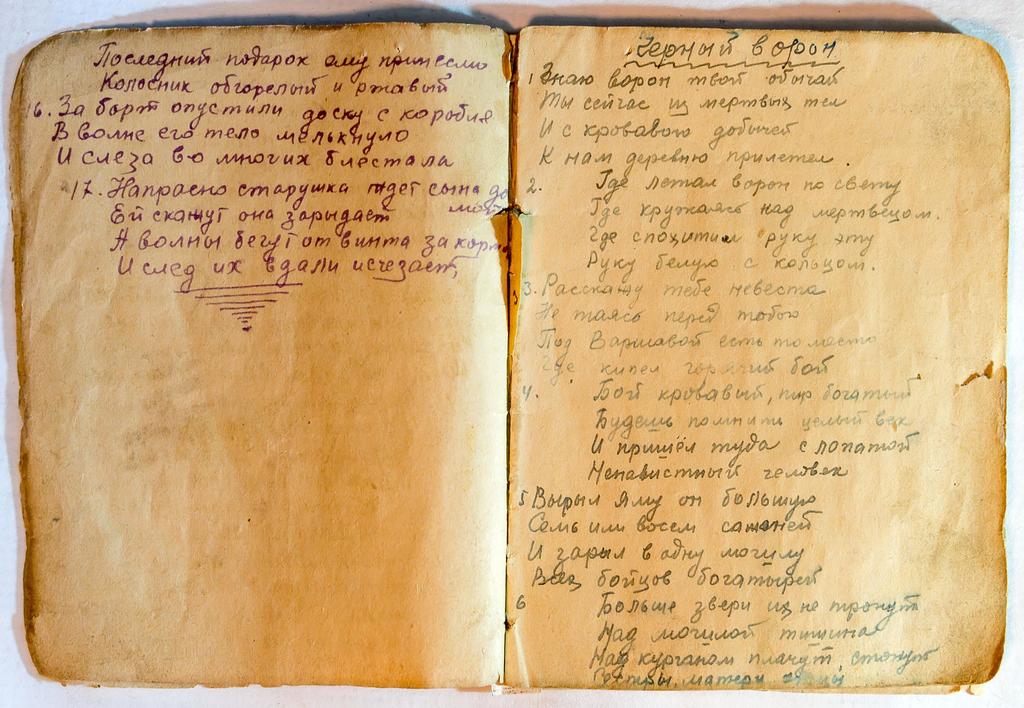 Последний подарок ему принесли
Колосник обгорелый и ржавый
16. За борт опустили доску с корабля
В волне его тело мелькнуло
И слеза во многих блестала
17. Напрасно старушка ждет сына до
мой
Ей скажут она зарыдает
А волны бегут от винта за корм
И след их вдали исчезает,
Черный ворон
1 Знаю ворон твой обычай
Ты сейчас из мертвых тел
И с кровавою добычей
К нам деревню прилетел.
2. Где летал ворон по свету
Где кружаясь над мертвецом.
Где спохитил руку эту
Руку белую с кольцом.
3. Расскажу тебе невеста
Не таясь перед тобою
Под Варшавой есть то место
Где кипел горячий бой
4. Бой кровавый, пир богатый
Будешь помнить целый век
И пришёл туда с лопатой
Ненавистный человек
5 Вырыл яму он большую
Семь или восем саженей
И зарыл в одну могилу
Всех бойцов богатырей
6 Больше звери их не тронут
Над могилой тишина
Над курганом плачут, стонут
матери